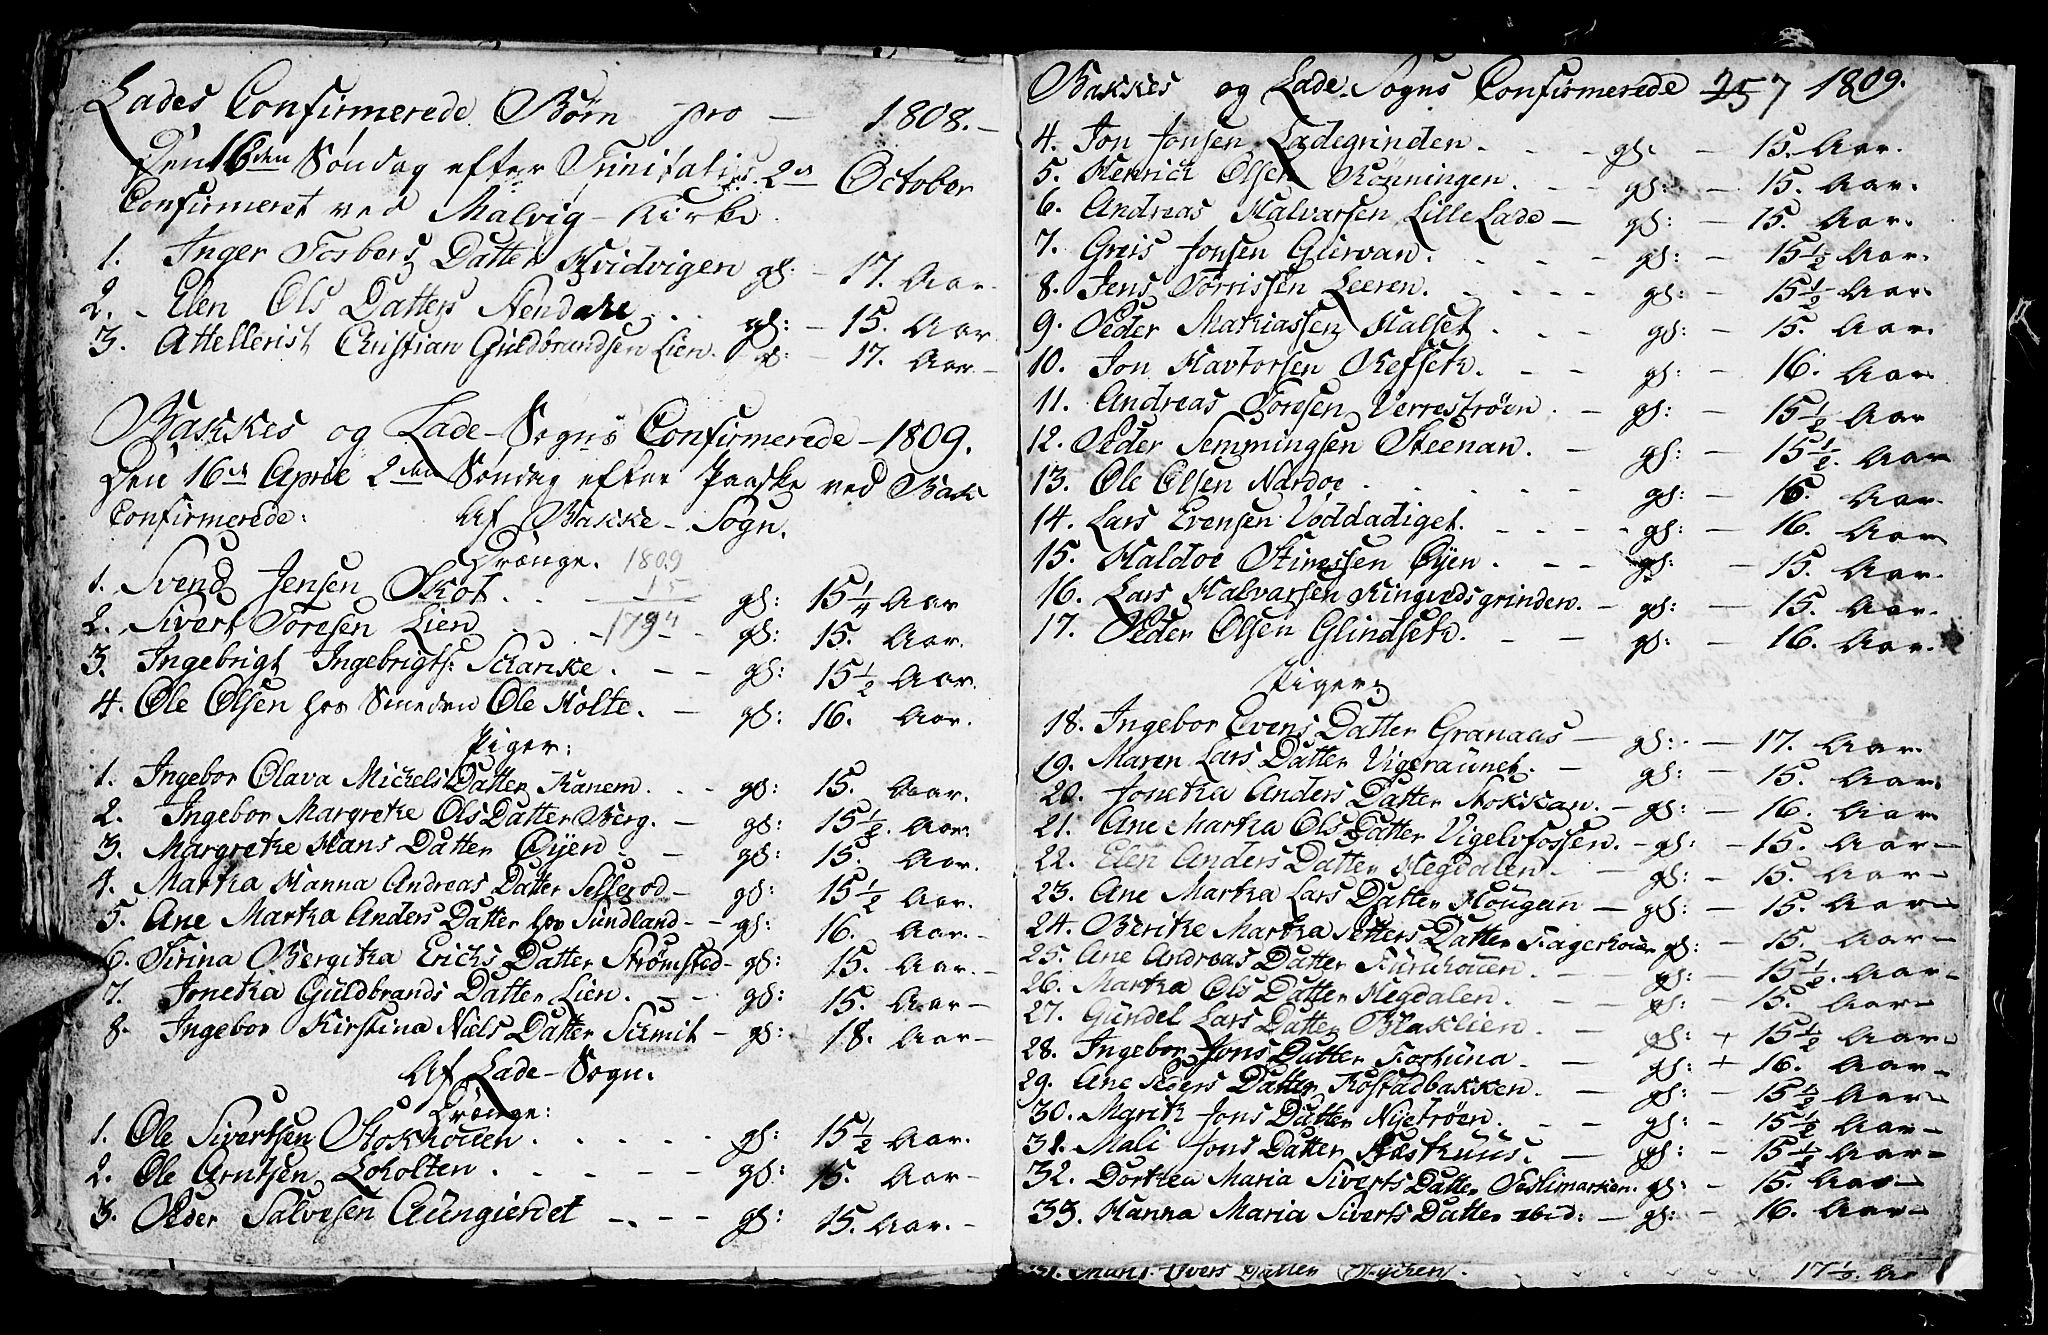 Lades Confirmerede Børn pro — 1808. —
Den 16den Søndag efter Trinitatis 2d October
Confirmeret ved Malvig - Kirke.
1. Inger Torbers Datter Hvidvigen gl: — 17. Aar.
2. Elen Ols Datter gl: — 15. Aar
3. Attellerist Christian Guldbrandsen Lien. gl: — 17. Aar —
Bakkes og Lade - Sogns Confirmerede — 1809.
Den 16d April 2den Søndag efter Paaske ved Bak
Confirmerede: Af Bakke - Sogn.
Drænge. 1809
15
1794
1. Svend Jensen Skot. gl: 15 1/4 Aar
2. Sivert Toresen Lien gl: 15. Aar.
3. Ingebrigt Ingebrigts: Schanke. gl: 15 1/2 Aar.
4. Ole Olsen hos Smeden Ole Holte. — gl: 16. Aar.
Piger:
1. Ingebor Olava Michels Datter Kanem. gl: 15. Aar.
2. Ingebor Margrethe Ols Datter Berg. — gl: 15 1/2. Aar.
3. Margrethe Hans Datter Øyen. — gl: 15. Aar.
4. Martha Hanna Andreas Datter Sellerod — gl: 15 1/2 Aar.
5. Ane Martha Anders Datter hos Sundland - - gl: 16. Aar. -
6. Sirina Bergitha Erichs Datter Strømsted - gl: 15. Aar. -
7. Jonetha Guldbrands Datter Lien. gl: 15. Aar —
8. Ingebor Kirstina Niels Datter Schmit — gl: 18. Aar —
Af Lade - Sogn.
Drænge:
1. Ole Sivertsen Stokhouen. gl: 15 1/2 Aar.
2. Ole Arntsen Loholten. gl: 15. Aar —
3. Peder Salvesen Aungierdet gl: 15. Aar. —
Bakkes og Lade - Sogns Confirmerede 257 1809.
4. Jon Jonsen Ladegrinden. gl: — 15. Aar.
5. Henrich Olsen Rønningen. gl: — 15. Aar.
6. Andreas Halvarsen Lille Lade — gl: — 15. Aar.
7. Greis Jonsen Gurvan. gl: — 15 1/2 Aar.
8. Jens Torrissen Leeren. gl: — 15 1/2 Aar.
9. Peder Mathiassen Halset. gl: — 15. Aar.
10. Jon Havtorsen Refseth. gl: — 16. Aar
11. Andreas Toresen Verrestrøen. — gl: — 15 1/2 Aar
12. Peder Semmingsen Steenan. — gl: — 15 1/2. Aar
13. Ole Olsen Nardoe. gl: — 16. Aar.
14. Lars Evensen Voddadiget. gl: — 16. Aar
15. Haldoe Øyen. gl: — 15. Aar.
16. Lars Halvarsen Ringvedsgrinden. — gl: — 15. Aar.
17. Peder Olsen Glindseth. gl: — 16. Aar.
Piger:
18. Ingebor Evens Datter Granaas — gl: — 17. Aar.
19. Maren Lars Datter Vigeraunet. — gl: — 15. Aar.
20. Jonetha Anders Datter Stokkan. — gl: — 16. Aar.
21. Ane Martha Ols Datter Vigelvfossen. - gl: — 15. Aar —
22. Elen Anders Datter Hegdalen. — gl: — 15. Aar —
23. Ane Martha Lars Datter Hougan — gl: — 15. Aar —
24. Berithe Martha Petters Datter Fagerhouen gl: — 15. Aar —
25. Ane Andreas Datter gl: — 15 1/2. Aar —
26. Martha Ols Datter Hegdalen. gl: — 15. Aar —
27. Gundel Lars Datter Baklien. — gl: + 15 1/2 Aar —
28. Ingebor Jons Datter Fortuna. — gl: + 16. Aar —
29. Ane Peders Datter Rostadbakken. — gl: — 15 1/2 Aar —
30. Marith Jons Datter Nyetrøen. — gl: — 15 1/2 Aar —
31. Mali Jons Datter — gl: — 15 1/2 Aar —
32. Dorthea Maria Siverts Datter gl: — 15. Aar —
33. Hanna Maria Siverts Datter ibid: — gl: — 16. Aar —
Ivers Datter 17 1/2. Aa